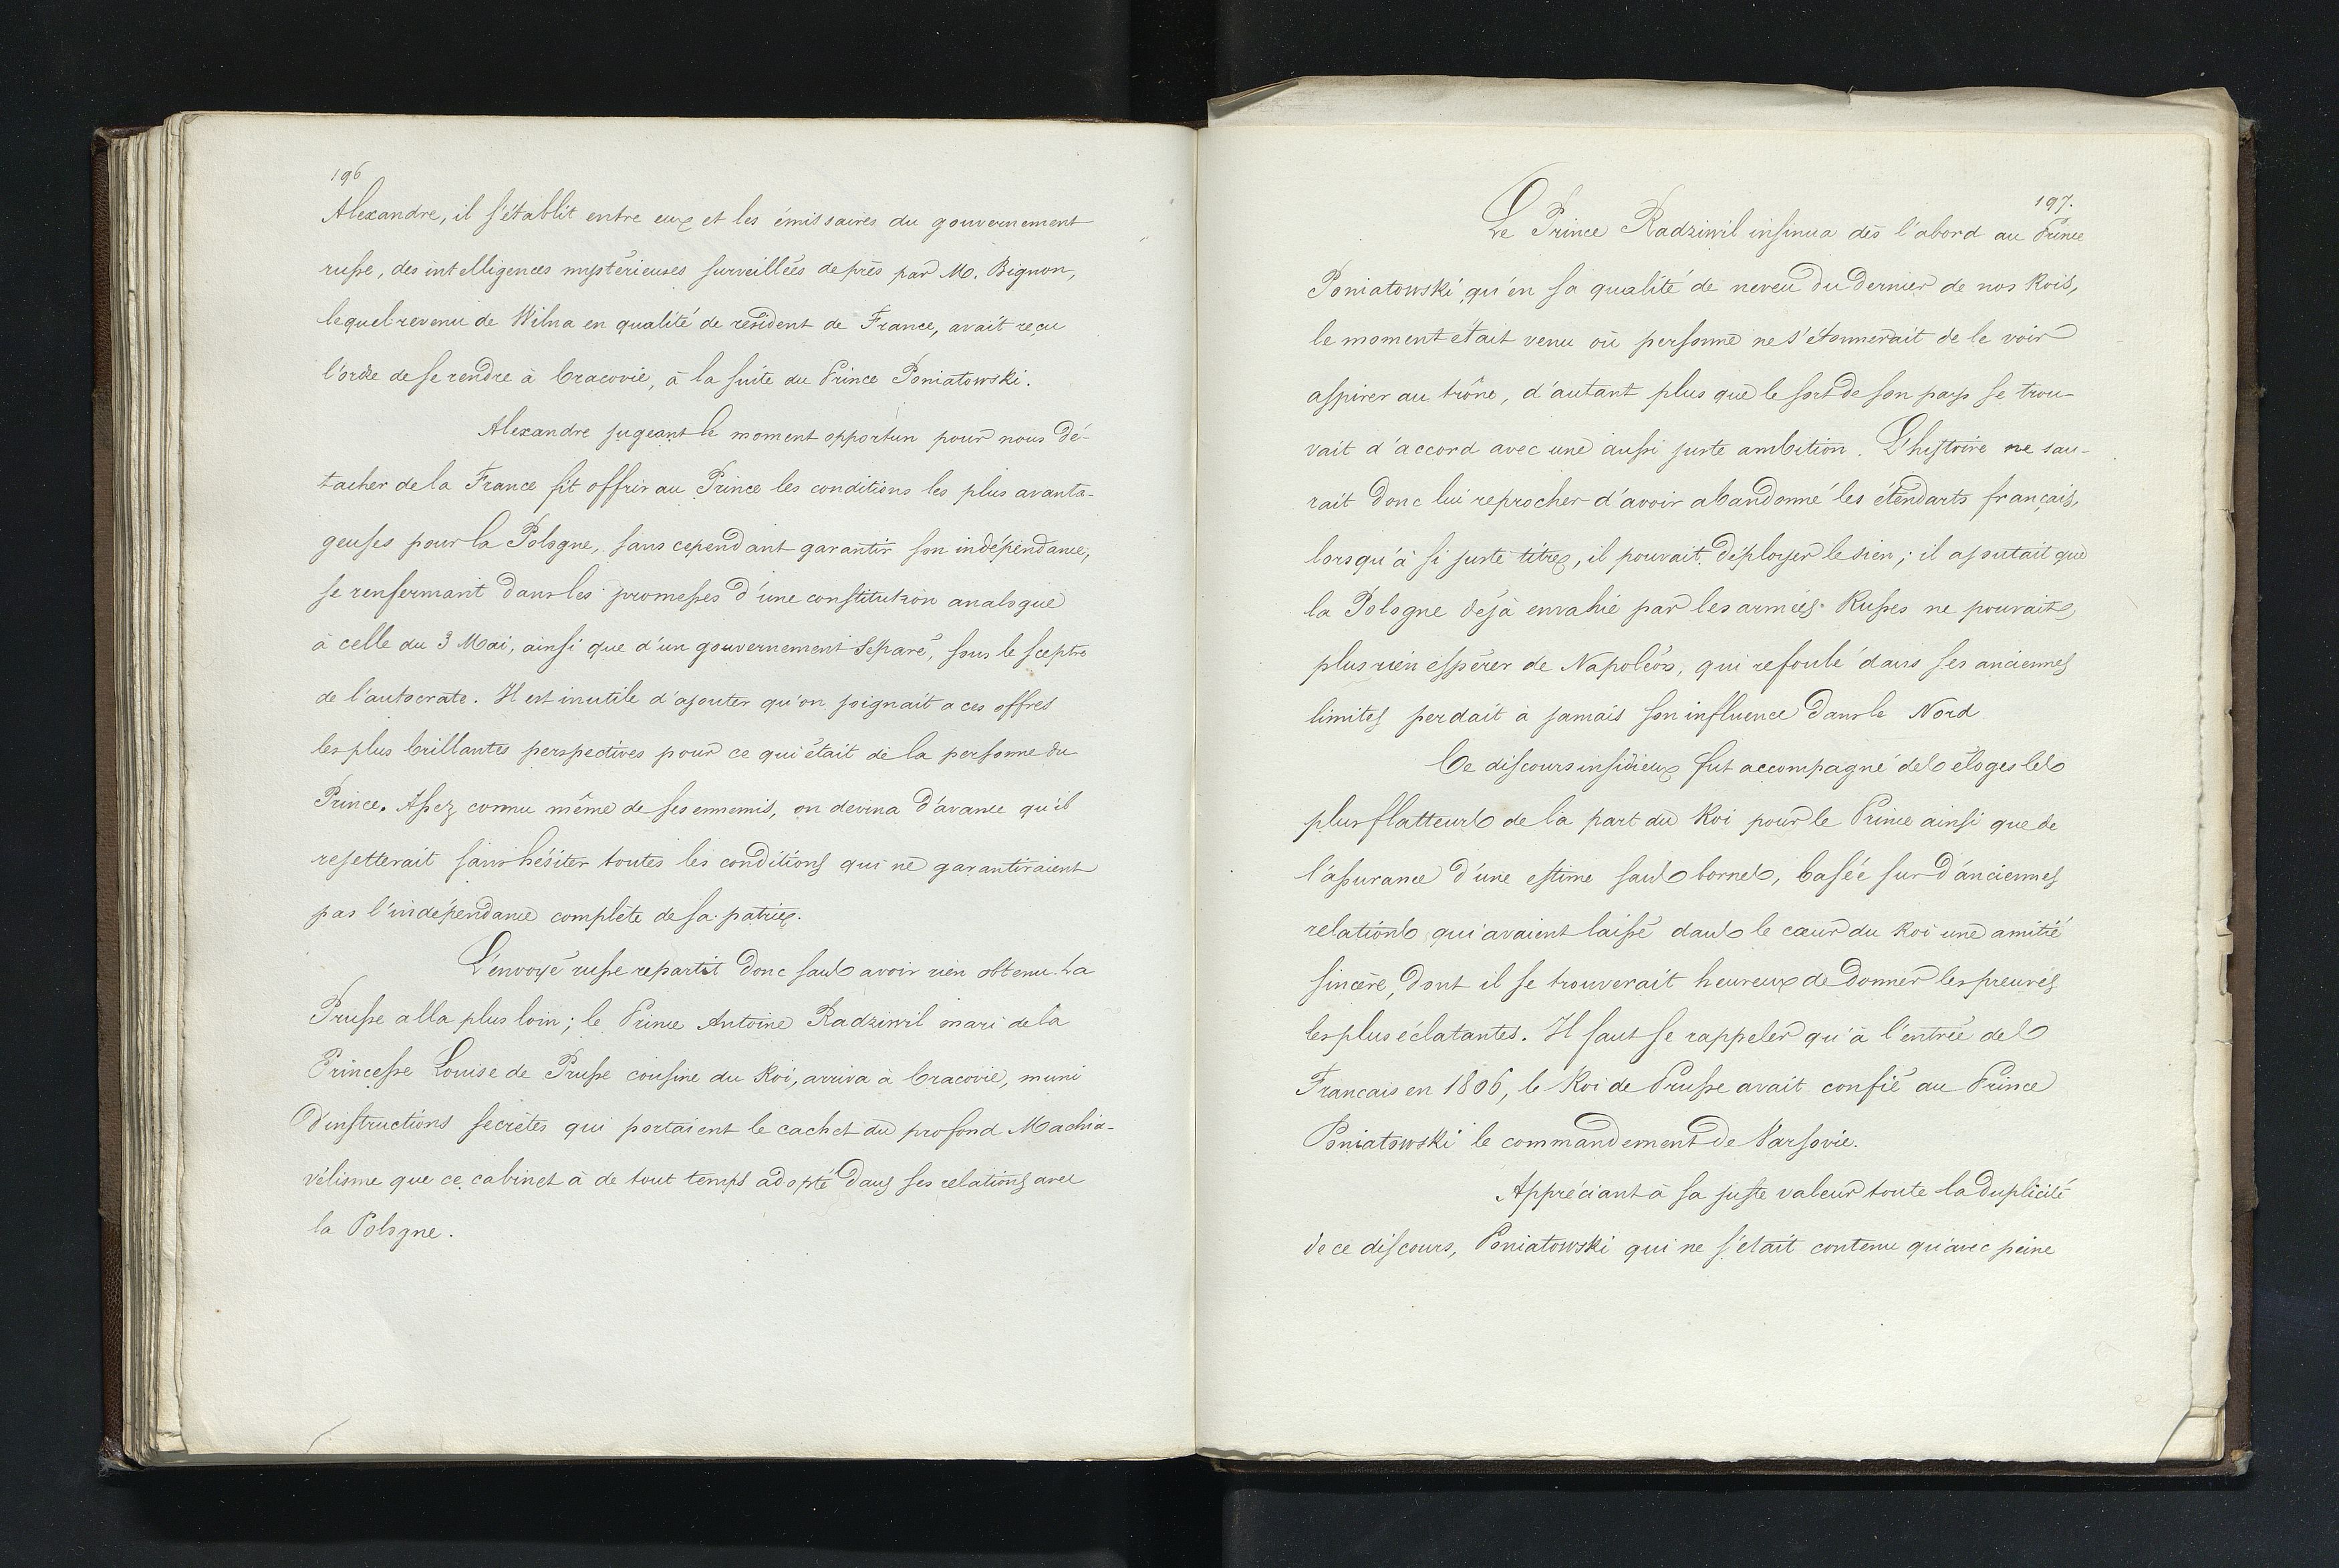 196
Alexandre, il s'établit entre eux et les émissaires du gouvernement
russe, des intelligences mystérieuses surveillées de près par M. Bignon,
lequel revenu de Wilna en qualité de résident de France, avait reçu
l'ordre de se rendre à Cracovie, à la suite du Prince Poniatowski.
Alexandre jugeant le moment opportun pour nous dé-
tacher de la France fit offrir au Prince les conditions les plus avanta-
geuses pour la Pologne, sans cependant garantir son indépendance,
se renfermant dans les promesses d'une constitution analogue
à celle du 3 Mai, ainsi que d'un gouvernement séparé, sous le sceptre
de l'autocrate. Il est inutile d'ajouter qu'on joignait a ces offres
les plus brillantes perspectives pour ce qui était de la personne du
Prince. Assez connu même de ses ennemis, on devina d'avance qu'il
rejetterait sans hésiter toutes les conditions qui ne garantiraient
pas l'indépendance complète de sa patrie.
L'envoyé russe repartit donc sans avoir rien obtenu. La
Prusse alla plus loin; le Prince Antoine Radziwil mari de la
Princesse Louise de Prusse cousine du Roi, arriva à Cracovie, muni
d'instructions secrètes qui portaient le cachet du profond Machia-
vélisme que ce cabinet à de tout temps adopté dans ses relations avec
la Pologne.
197.
Le Prince Radziwil insinua dès l'abord au Prince
Poniatowski, qu'en sa qualité de neveu du dernier de nos Rois,
le moment était venu où personne ne s'étonnerait de le voir
aspirer au trône, d'autant plus que le sort de son pays se trou-
vait d'accord avec une aussi juste ambition. L'histoire ne sau-
rait donc lui reprocher d'avoir abandonné les étendarts français,
lorsqu'à si juste titre, il pouvait déployer le sien; il ajoutait que
la Pologne déjà envahie par les armées Russes ne pouvait
plus rien espérer de Napoléon, qui refoulé dans ses anciennes
limites perdait à jamais son influence dans le Nord
Ce discours insidieux fut accompagné des éloges les
plus flatteurs de la part du Roi pour le Prince ainsi que de
l'assurance d'une estime sans bornes, basée sur d'anciennes
relations qui avaient laissé dans le cœur du Roi une amitié
sincère, dont il se trouverait heureux de donner les preuves
les plus éclatantes. Il faut se rappeler qu'à l'entrée des
Francais en 1806, le Roi de Prusse avait confié au Prince
Poniatowski le commandement de Varsovie.
Appréciant à sa juste valeur toute la duplicité
de ce discours, Poniatowski qui ne s'était contenu qu'avec peine